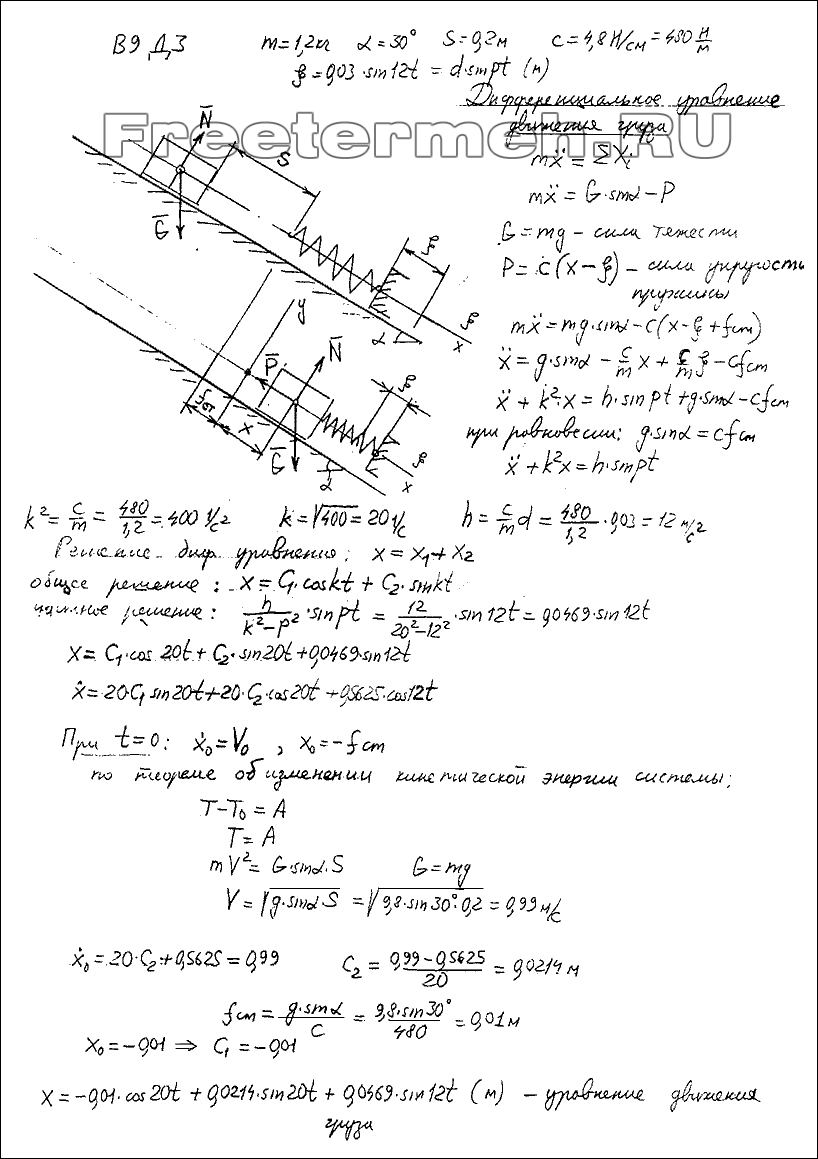 В9 Д3 m=1,2кг α=30° S=0,2м c=4,8Н/см=480 Н/м
ξ=0,03·sin12t = d·sin pt (м)
Дифференциальное уравнение
движения груза
Freetermeh.RU
mẍ = ΣXi
mẍ = G·sinα−P
G=mg – сила тяжести
P=c(x−ξ) – сила упругость
пружины
mẍ=mg·sinα−c(x−ξ+fст)
ẍ=g·sinα − c/m x + c/m ξ − cfст
ẍ + k²·x = h·sin pt + g·sinα − cfст
при равновесии: g·sinα = cfст
ẍ + k²x = h·sin pt
N̄
S
Ḡ
ξ
ξ
α
x
y
P̄
N̄
ξ
fст
x
Ḡ
α
ξ
x
k² = c/m = 480/1,2 = 400 1/с² k=√400=20 1/с h = c/m d = 480/1,2 · 0,03 = 12 м/с²
Решение диф уравнения: x = x₁+x₂
общее решение: x = C₁·cos kt + C₂·sin kt
частное решение: h/(k²−p²) · sin pt = 12/(20²−12²) · sin 12t = 0,0469·sin 12t
x = C₁·cos 20t + C₂·sin20t+0,0469·sin12t
ẋ = 20·C₁ sin20t+20·C₂·cos20t +0,5625·cos12t
При t=0: ẋ₀=V₀ , x₀=−fст
по теореме об изменении кинетической энергии системы:
T−T₀ = A
T = A
mV²= G·sinα·S G=mg
V = √(g·sinα S) = √(9,8·sin30°·0,2) = 0,99 м/с
ẋ₀ = 20·C₂+0,5625 = 0,99 C₂ = (0,99−0,5625)/20 = 0,0214 м
fст = g·sinα/c = 9,8·sin30°/480 = 0,01м
x₀=−0,01 ⇒ C₁=−0,01
x = −0,01·cos20t + 0,0214·sin20t + 0,0469·sin12t (м) – уравнение движения
груза